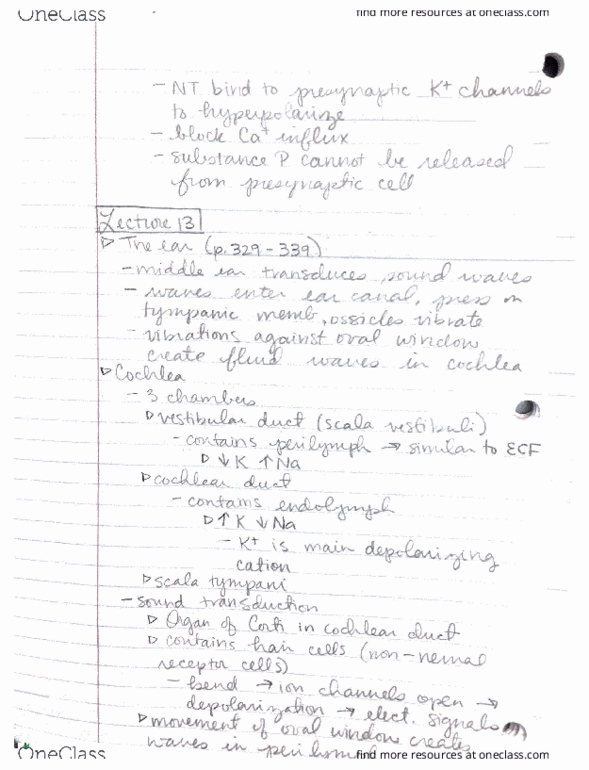 OneClass
find more resources at oneclass.com
- NT bind to presynaptic K+ channels
to hyperpolarize
- block Ca+ influx
- substance P cannot be released
from presynaptic cell
Lecture 13
▷ The ear (p.329-339)
- middle ear transduces sound waves
- waves enter ear canal, press on
tympanic memb, ossicles vibrate
- vibrations against oval window
create fluid waves in cochlea
▷ Cochlea
- 3 chambers
▷ vestibular duct (scala vestibuli)
- contains perilymph → similar to ECF
▷ ↓K ↑Na
▷ cochlear duct
- contains endolymph
▷ ↑K ↓Na
- K+ is main depolarizing
cation
▷ scala tympani
- sound transduction
▷ Organ of Corti in cochlear duct
▷ contains hair cells (non-neural
receptor cells)
- bend → ion channels open →
depolarization → elect. signals
▷ movement of oval window creates
waves in perilymph
OneClass
find more resources at oneclass.com